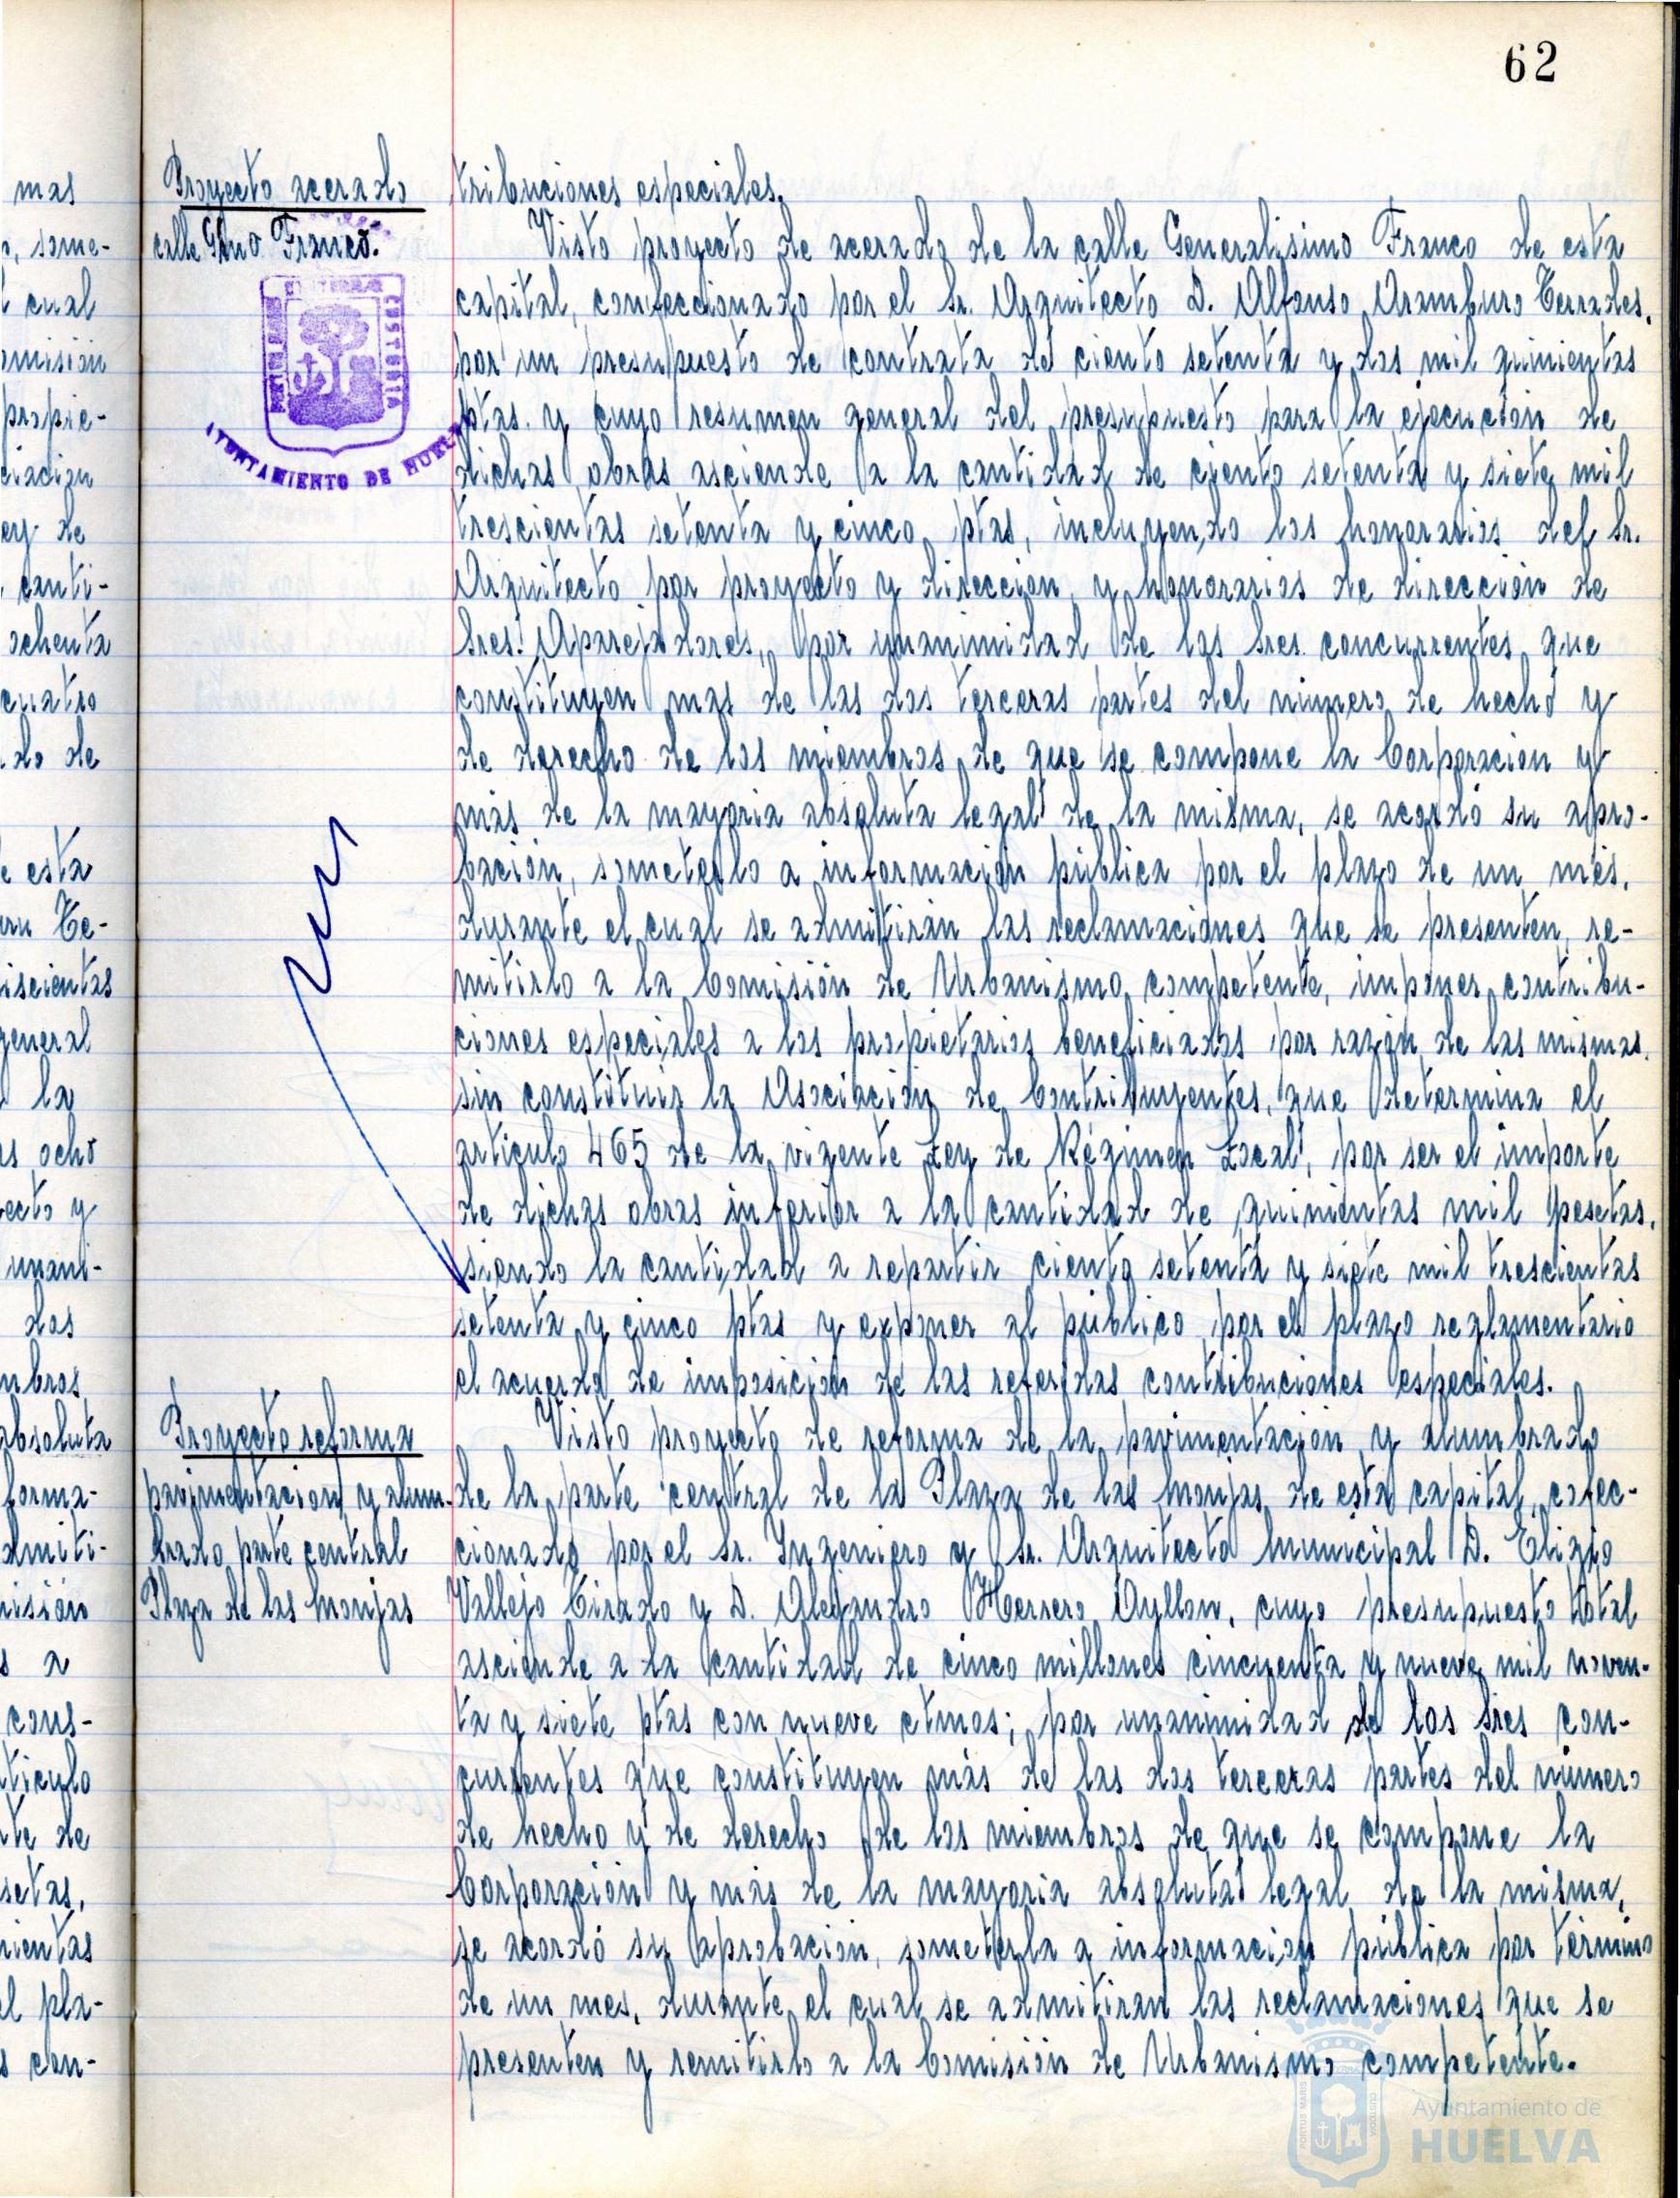 62
mas
, some-
cual
omisión
propie-
ciacion
ey de
canti-
ochenta
cuatro
do de
e esta
uru Te-
iscientas
general
la
s ocho
ecto y
unani-
dos
mbros
absoluta
forma-
dmiti-
misión
s a
cons-
tículo
te de
setas,
ientas
el pla-
s con-
Proyecto acerado
calle Glmo Franco.
AYUNTAMIENTO DE HUELVA
tribuciones especiales.
Visto proyecto de acerado de la calle Generalisimo Franco de esta
capital, confeccionado por el Sr. Arquitecto D. Alfonso Aramburo Terrades,
por un presupuesto de contrata de ciento setenta y dos mil quinientas
ptas. y cuyo resumen general del presupuesto para la ejecución de
dichas obras asciende a la cantidad de ciento setenta y siete mil
trescientas setenta y cinco ptas, incluyendo los honorarios del Sr.
Arquitecto por proyecto y direccion y honorarios de dirección de
Sres. Aparejadores, por unanimidad de los Sres. concurrentes que
constituyen mas de las dos terceras partes del número de hecho y
de derecho de los miembros de que se compone la Corporacion y
más de la mayoria absoluta legal de la misma, se acordó su apro-
bación, someterlo a información pública por el plazo de un mes,
durante el cual se admitirán las reclamaciones que se presenten, re-
mitirlo a la Comisión de Urbanismo competente, imponer contribu-
ciones especiales a los propietarios beneficiados por razón de las mismas,
sin constituir la Asociación de Contribuyentes, que determina el
articulo 465 de la vigente Ley de Régimen Local, por ser el importe
de dichas obras inferior a la cantidad de quinientas mil pesetas,
siendo la cantidad a repartir ciento setenta y siete mil trescientas
setenta y cinco ptas y exponer al público por el plazo reglamentario
el acuerdo de imposición de las referidas contribuciones especiales.
Proyecto reforma
pavimentacion y alum-
brado parte central
Plaza de las Monjas
Visto proyecto de reforma de la pavimentación y alumbrado
de la parte central de la Plaza de las Monjas de esta capital, cofec-
cionado por el Sr. Ingeniero y Sr. Arquitecto Municipal D. Eligio
Vallejo Tirado y D. Alejandro Herrero Ayllon, cuyo presupuesto total
asciende a la cantidad de cinco millones cincuenta y nueve mil noven-
ta y siete ptas con nueve ctmos; por unanimidad de los Sres con-
currentes que constituyen más de las dos terceras partes del número
de hecho y de derecho de los miembros de que se compone la
Corporación y más de la mayoria absoluta legal de la misma,
se acordó su aprobacion, someterla a información pública por término
de un mes, durante el cual se admitiran las reclamaciones que se
presenten y remitirlo a la Comisión de Urbanismo competente.
Ayuntamiento de
HUELVA